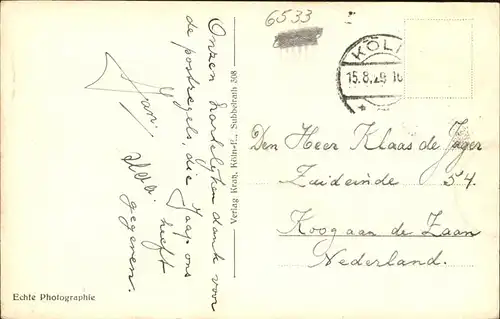 6533
KÖLN
15.8.29.16
Onzen hartelyken dank voor
de postzegels, die Jaap ons
heeft
gegeven.
Verlag Krah, Köln-E., Subbelrath 308
Den Heer Klaas de Jager
Zuideinde 54.
Koog aan de Zaan
Nederland.
Echte Photographie